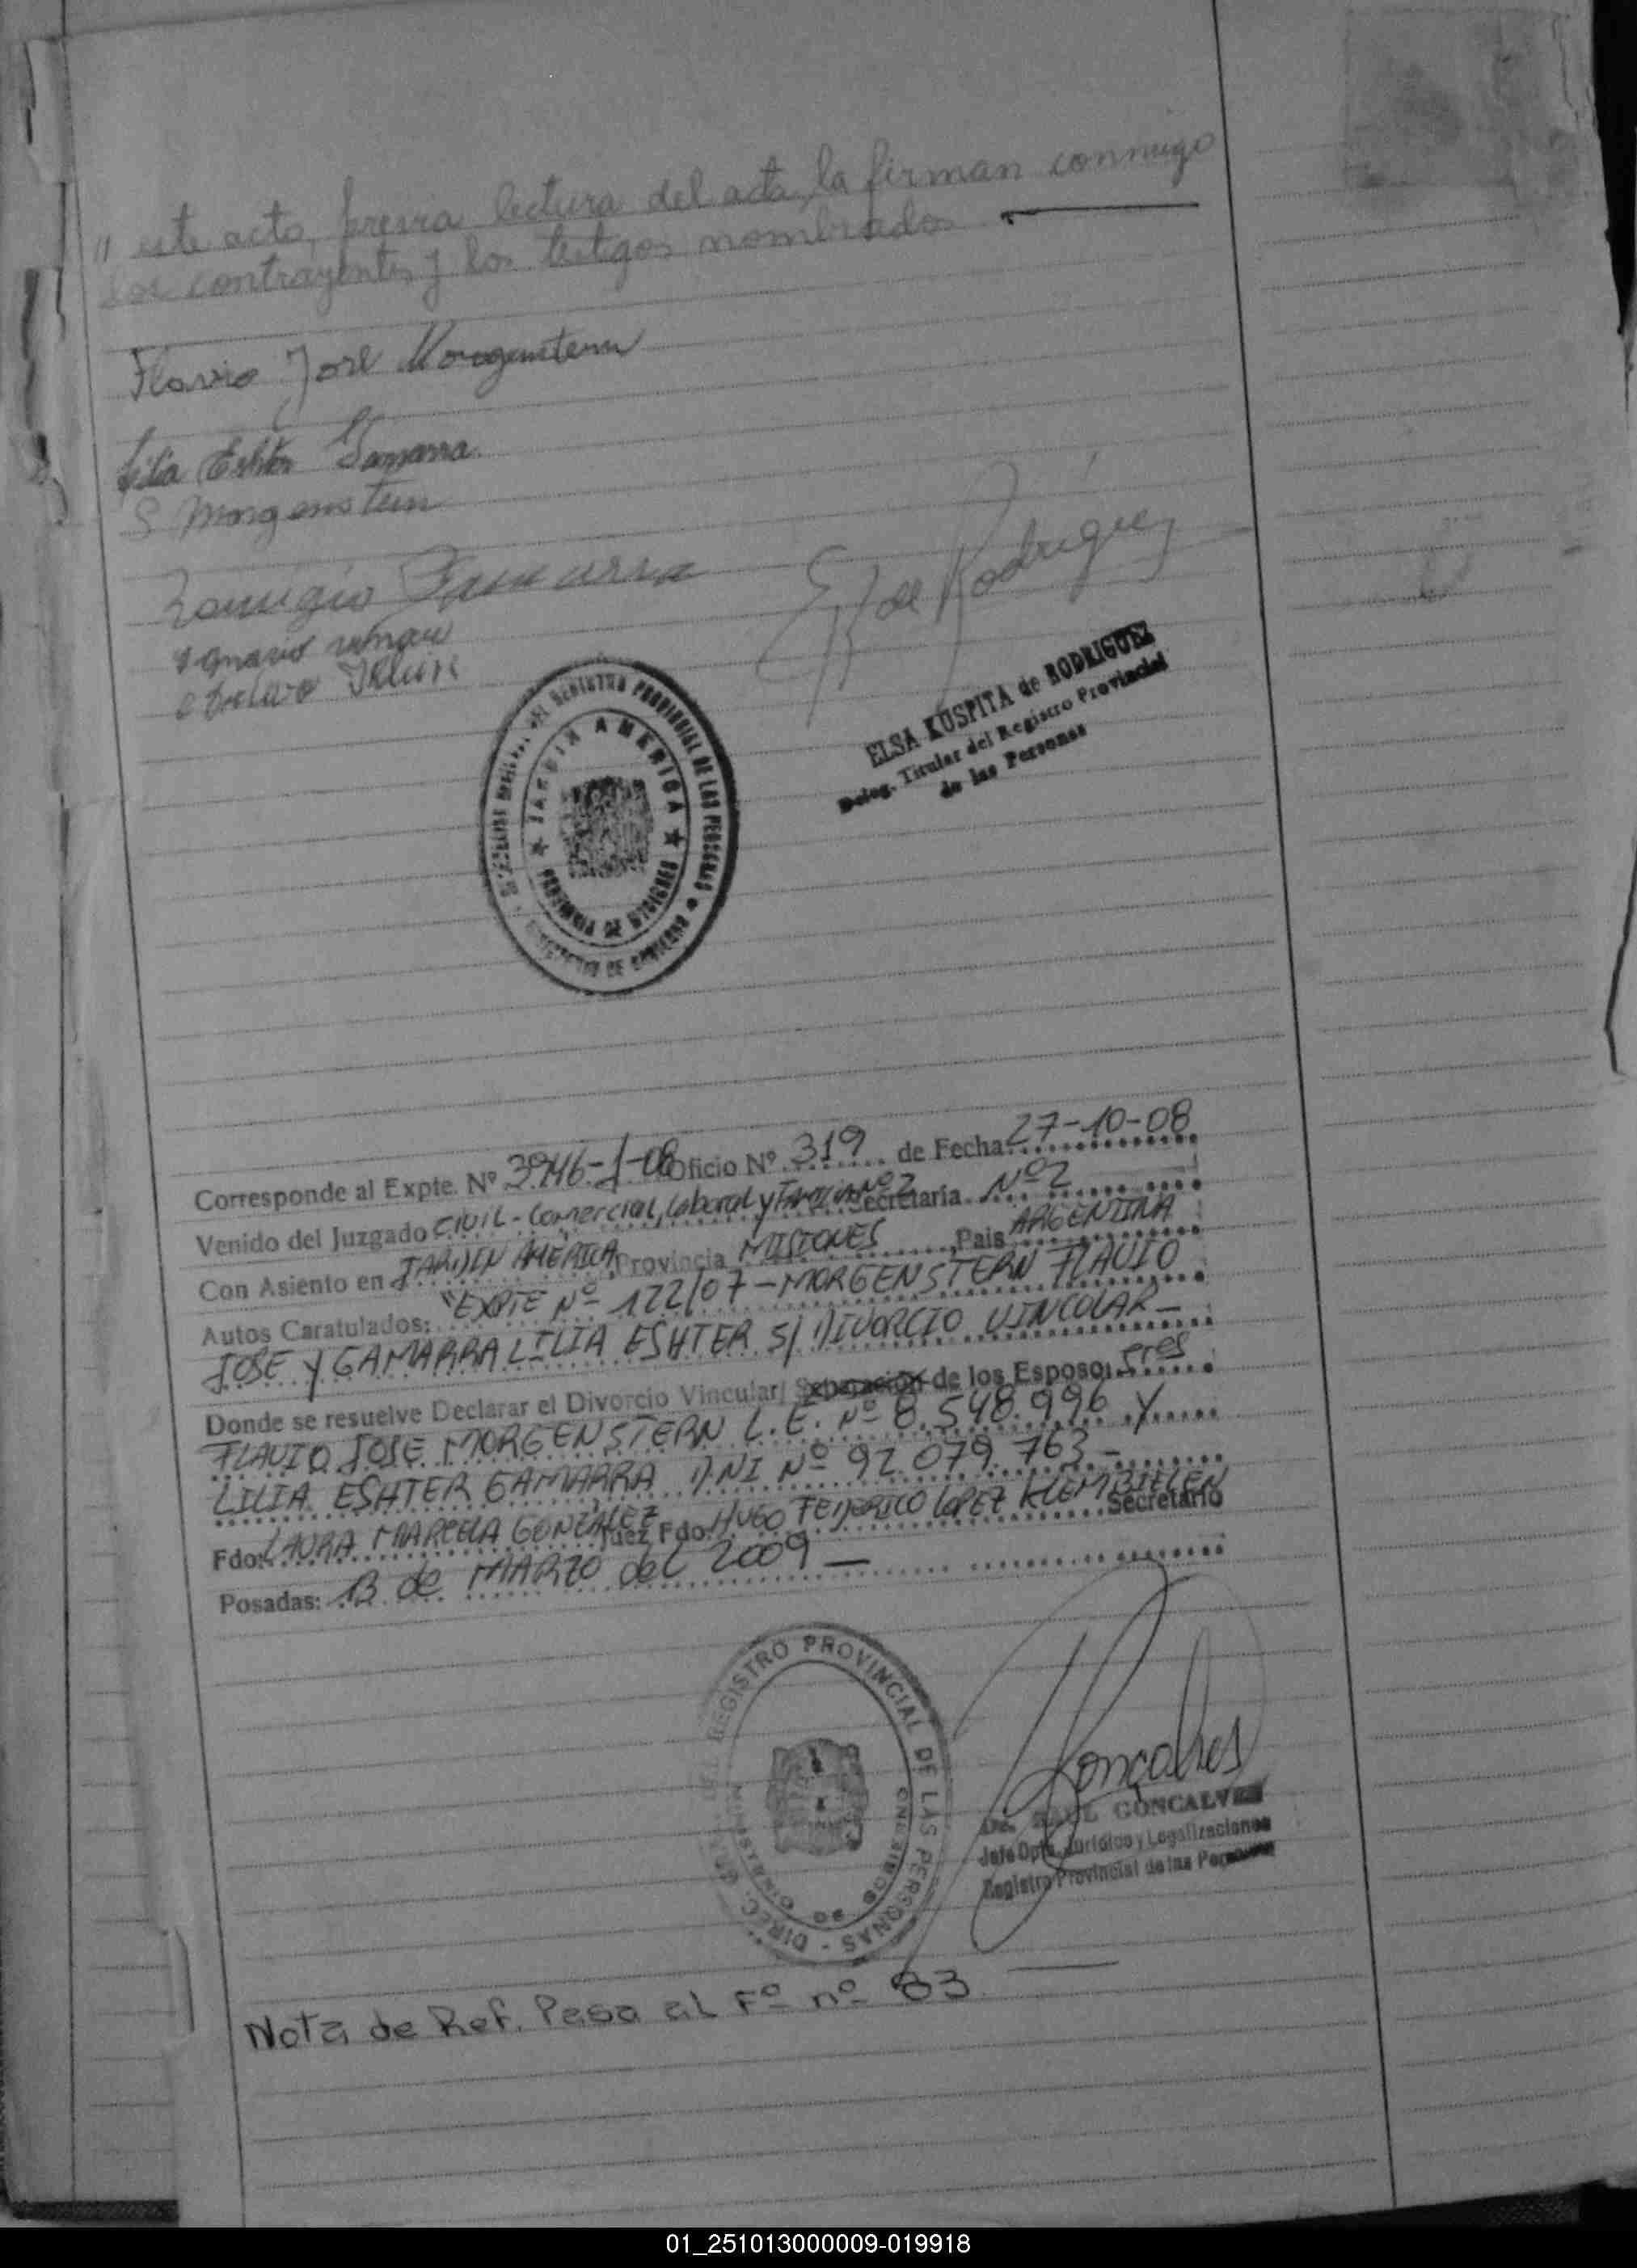 " este acto, previa lectura del acta, la firman conmigo
los contrayentes y los testigos nombrados
Flavio José Morgenstern
Lilia Eshter Gamarra.
S Morgenstern
Remigio Gamarra
E K de Rodriguez
ELSA KUSPITA de RODRIGUEZ
Deleg. Titular del Registro Provincial
de las Personas
DEL REGISTRO PROVINCIAL DE LAS PERSONAS
JARDIN AMERICA
PROVINCIA DE MISIONES
DE GOBIERNO
Corresponde al Expte. Nº 3946-J-08 Oficio Nº 319 de Fecha: 27-10-08
Venido del Juzgado CIVIL - Comercial, Laboral y Familia Nº 2 Secretaria Nº 2
Con Asiento en JARDIN AMERICA Provincia MISIONES, Pais ARGENTINA
Autos Caratulados: "EXPTE Nº 122/07 - MORGENSTERN FLAVIO
JOSE Y GAMARRA LILIA ESHTER S/ DIVORCIO VINCULAR -
Donde se resuelve Declarar el Divorcio Vincular/ Separación de los Esposos: Sres
FLAVIO JOSE MORGENSTERN L.E. Nº 8.548.996 Y
LILIA ESHTER GAMARRA DNI Nº 92.079.763 -
Fdo: LAURA MARCELA GONZALEZ Juez Fdo: HUGO FEDERICO LOPEZ KLEMBIELEN Secretario
Posadas: 13 de MARZO del 2009 -
REGISTRO PROVINCIAL DE LAS PERSONAS - DIREC. GRAL. DEL
MINISTERIO DE GOBIERNO
Gonçalves
Dr. RAUL GONCALVES
Jefe Dpto. Jurídico y Legalizaciones
Registro Provincial de las Personas
Nota de Ref. Pasa al Fº nº 83
01_251013000009-019918